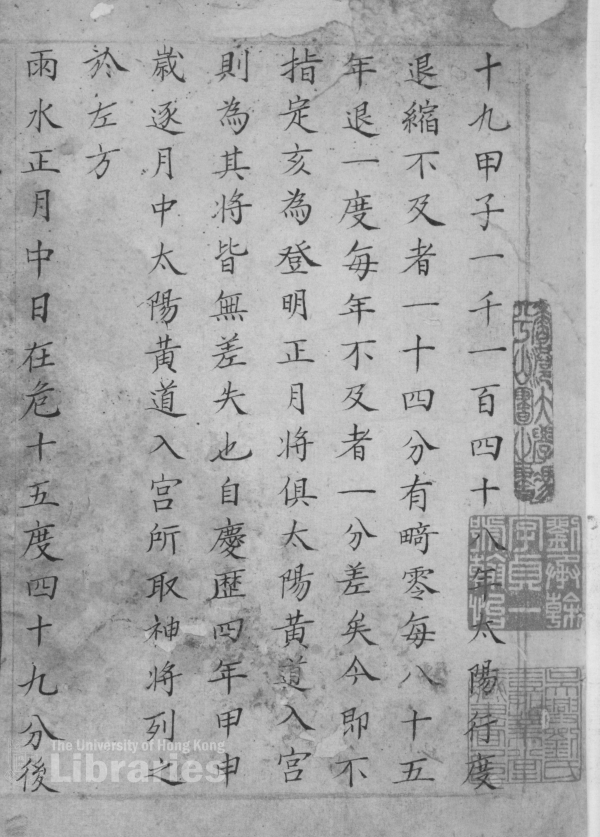 十九甲子一千一百四十八年太陽行度
退縮不及者一十四分有畸零每八十五
年退一度每年不及者一分差矣今即不
指定亥為登明正月將俱太陽黃道入宮
則為其將皆無差失也自慶歷四年甲申
歲逐月中太陽黃道入宮所取神將列之
於左方
雨水正月中日在危十五度四十九分後
The University of Hong Kong
Libraries